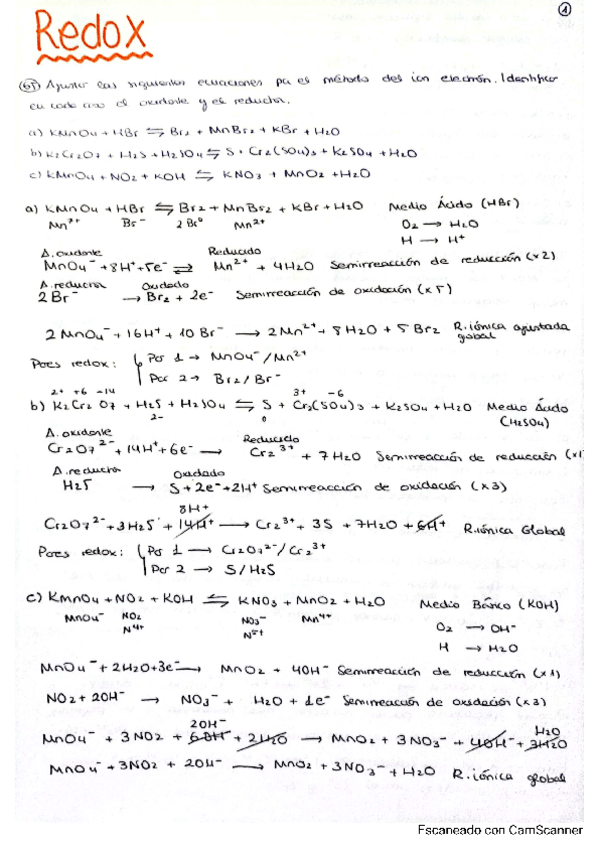 1
Redox
65) Ajustar las siguientes ecuaciones por el método del ion electrón. Identificar
en cada caso el oxidante y el reductor.
a) KMnO4 + HBr ⇆ Br2 + MnBr2 + KBr + H2O
b) K2Cr2O7 + H2S + H2SO4 ⇆ S + Cr2(SO4)3 + K2SO4 + H2O
c) KMnO4 + NO2 + KOH ⇆ KNO3 + MnO2 + H2O
a) KMnO4 + HBr ⇆ Br2 + MnBr2 + KBr + H2O Medio Ácido (HBr)
Mn7+ Br- 2Br0 Mn2+ O2 → H2O
H → H+
A. oxidante Reducido
MnO4- + 8H+ + 5e- ⇄ Mn2+ + 4H2O Semirreacción de reducción (x2)
A. reductor Oxidado
2Br- → Br2 + 2e- Semirreacción de oxidación (x5)
2MnO4- + 16H+ + 10Br- → 2Mn2+ + 8H2O + 5Br2 R. iónica ajustada
global
Pares redox: Par 1 → MnO4-/Mn2+
Par 2 → Br2/Br-
2+ +6 -14 3+ -6
b) K2Cr2O7 + H2S + H2SO4 ⇆ S + Cr2(SO4)3 + K2SO4 + H2O Medio Ácido
2- 0 (H2SO4)
A. oxidante Reducido
Cr2O7 2- + 14H+ + 6e- → Cr2 3+ + 7H2O Semirreacción de reducción (x1
A. reductor Oxidado
H2S → S + 2e- + 2H+ Semirreacción de oxidación (x3)
8H+
Cr2O7 2- + 3H2S + 14H+ → Cr2 3+ + 3S + 7H2O + 6H+ R. iónica Global
Pares redox: Par 1 → Cr2O7 2-/Cr2 3+
Par 2 → S/H2S
c) KMnO4 + NO2 + KOH ⇆ KNO3 + MnO2 + H2O Medio Básico (KOH)
MnO4- NO2 NO3- Mn4+ O2 → OH-
N4+ N5+ H → H2O
MnO4- + 2H2O + 3e- → MnO2 + 4OH- Semirreacción de reducción (x1)
NO2 + 2OH- → NO3- + H2O + 1e- Semirreación de oxidación (x3)
2OH- H2O
MnO4- + 3NO2 + 6OH- + 2H2O → MnO2 + 3NO3- + 4OH- + 3H2O
MnO4- + 3NO2 + 2OH- → MnO2 + 3NO3- + H2O R. iónica global
Escaneado con CamScanner